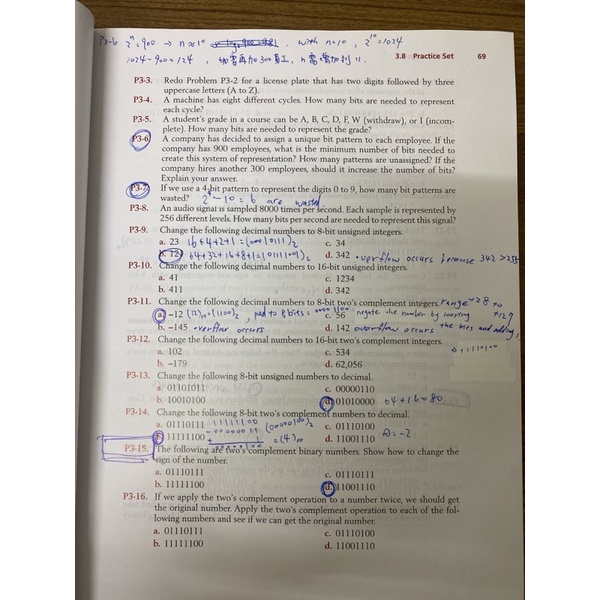 P3-6 2ⁿ=900 → n≈10 . with n=10 , 2¹⁰=1024
1024-900=124 , 如需再加300員工, n需增加到11.
3.8 Practice Set 69
P3-3. Redo Problem P3-2 for a license plate that has two digits followed by three
uppercase letters (A to Z).
P3-4. A machine has eight different cycles. How many bits are needed to represent
each cycle?
P3-5. A student's grade in a course can be A, B, C, D, F, W (withdraw), or I (incom-
plete). How many bits are needed to represent the grade?
P3-6. A company has decided to assign a unique bit pattern to each employee. If the
company has 900 employees, what is the minimum number of bits needed to
create this system of representation? How many patterns are unassigned? If the
company hires another 300 employees, should it increase the number of bits?
Explain your answer.
P3-7. If we use a 4-bit pattern to represent the digits 0 to 9, how many bit patterns are
wasted? 2⁴-10=6 are wasted
P3-8. An audio signal is sampled 8000 times per second. Each sample is represented by
256 different levels. How many bits per second are needed to represent this signal?
P3-9. Change the following decimal numbers to 8-bit unsigned integers.
a. 23 16+4+2+1=(00010111)₂ c. 34
b. 121 64+32+16+8+1=(01111001)₂ d. 342 overflow occurs because 342 >255
P3-10. Change the following decimal numbers to 16-bit unsigned integers.
a. 41 c. 1234
b. 411 d. 342
P3-11. Change the following decimal numbers to 8-bit two's complement integers. range -128 to +127
a. -12 (12)₁₀=(1100)₂ , pad to 8 bits= 00001100 c. 56 negate the number by inverting
b. -145 overflow occurs d. 142 overflow occurs the bits and adding 1
P3-12. Change the following decimal numbers to 16-bit two's complement integers.
⇒11110100
a. 102 c. 534
b. -179 d. 62,056
P3-13. Change the following 8-bit unsigned numbers to decimal.
a. 01101011 c. 00000110
b. 10010100 d. 01010000 64+16=80
P3-14. Change the following 8-bit two's complement numbers to decimal.
a. 01110111 11111100 (00000100)₂ c. 01110100
00000011
b. 11111100 =(4)₁₀ d. 11001110
P3-15. The following are two's complement binary numbers. Show how to change the
sign of the number.
a. 01110111 c. 01110111
b. 11111100 d. 11001110
P3-16. If we apply the two's complement operation to a number twice, we should get
the original number. Apply the two's complement operation to each of the fol-
lowing numbers and see if we can get the original number.
a. 01110111 c. 01110100
b. 11111100 d. 11001110